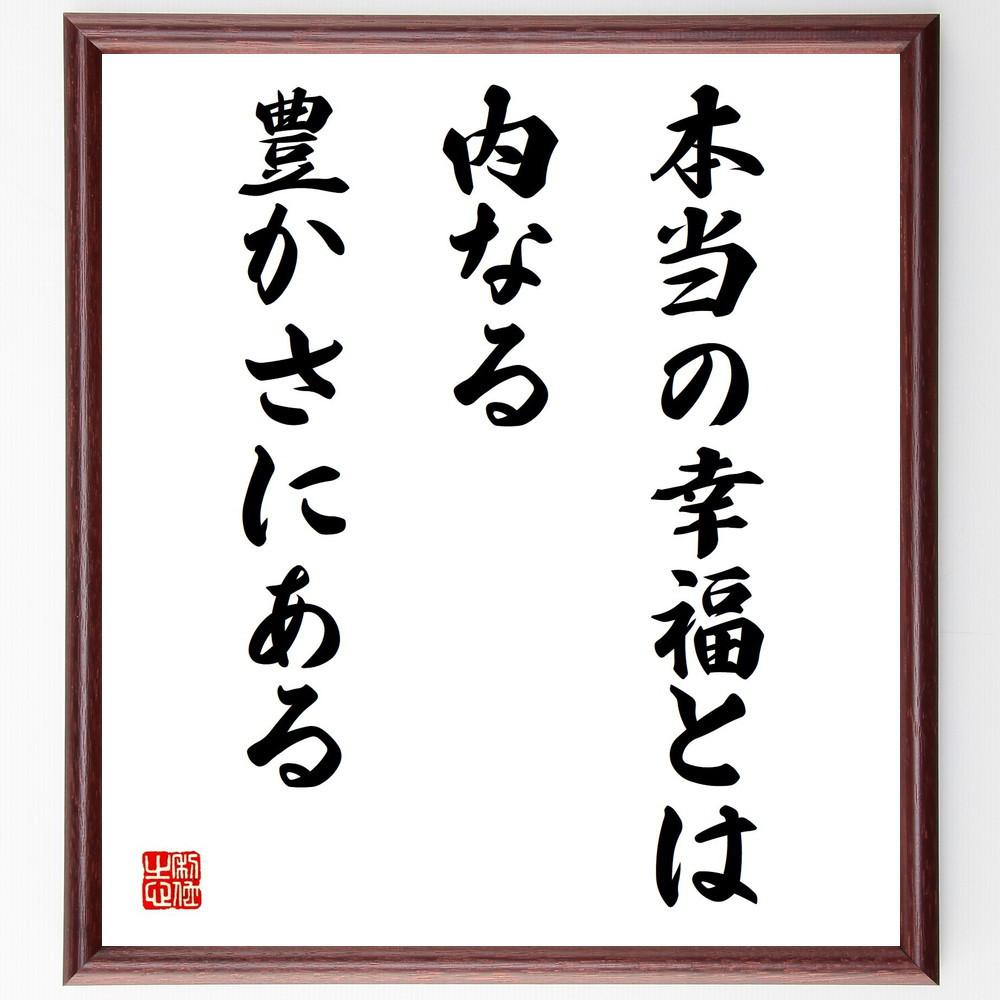 本当の幸福とは
内なる
豊かさにある